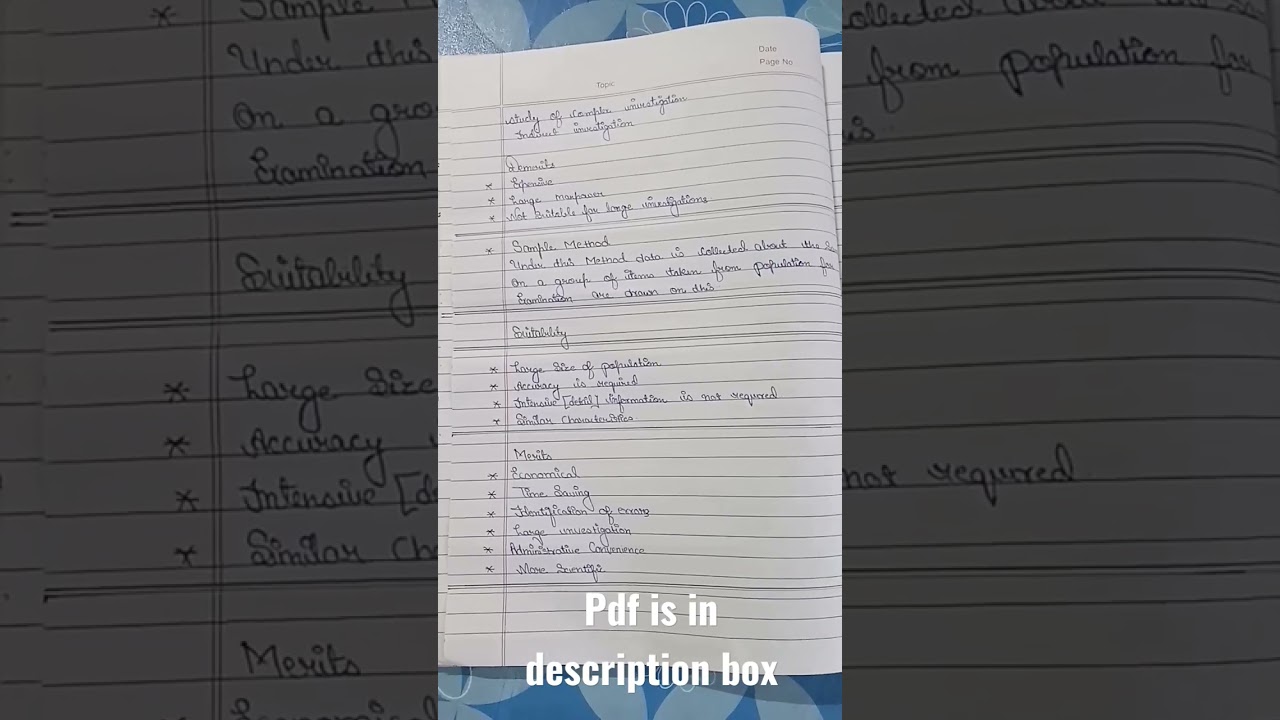 Date
Page No
Topic
Study of complex investigation
Indirect investigation
Demerits
* Expensive
* Large manpower
* Not Suitable for large investigations
* Sample Method
Under this Method data is collected about the
on a group of items taken from population for
Examination are drawn on this
Suitability
* Large Size of population
* Accuracy is required
* Intensive [detail] information is not required
* Similar Characteristics
Merits
* Economical
* Time Saving
* Identification of errors
* Large investigation
* Administrative Convenience
* More Scientific
Pdf is in
description box